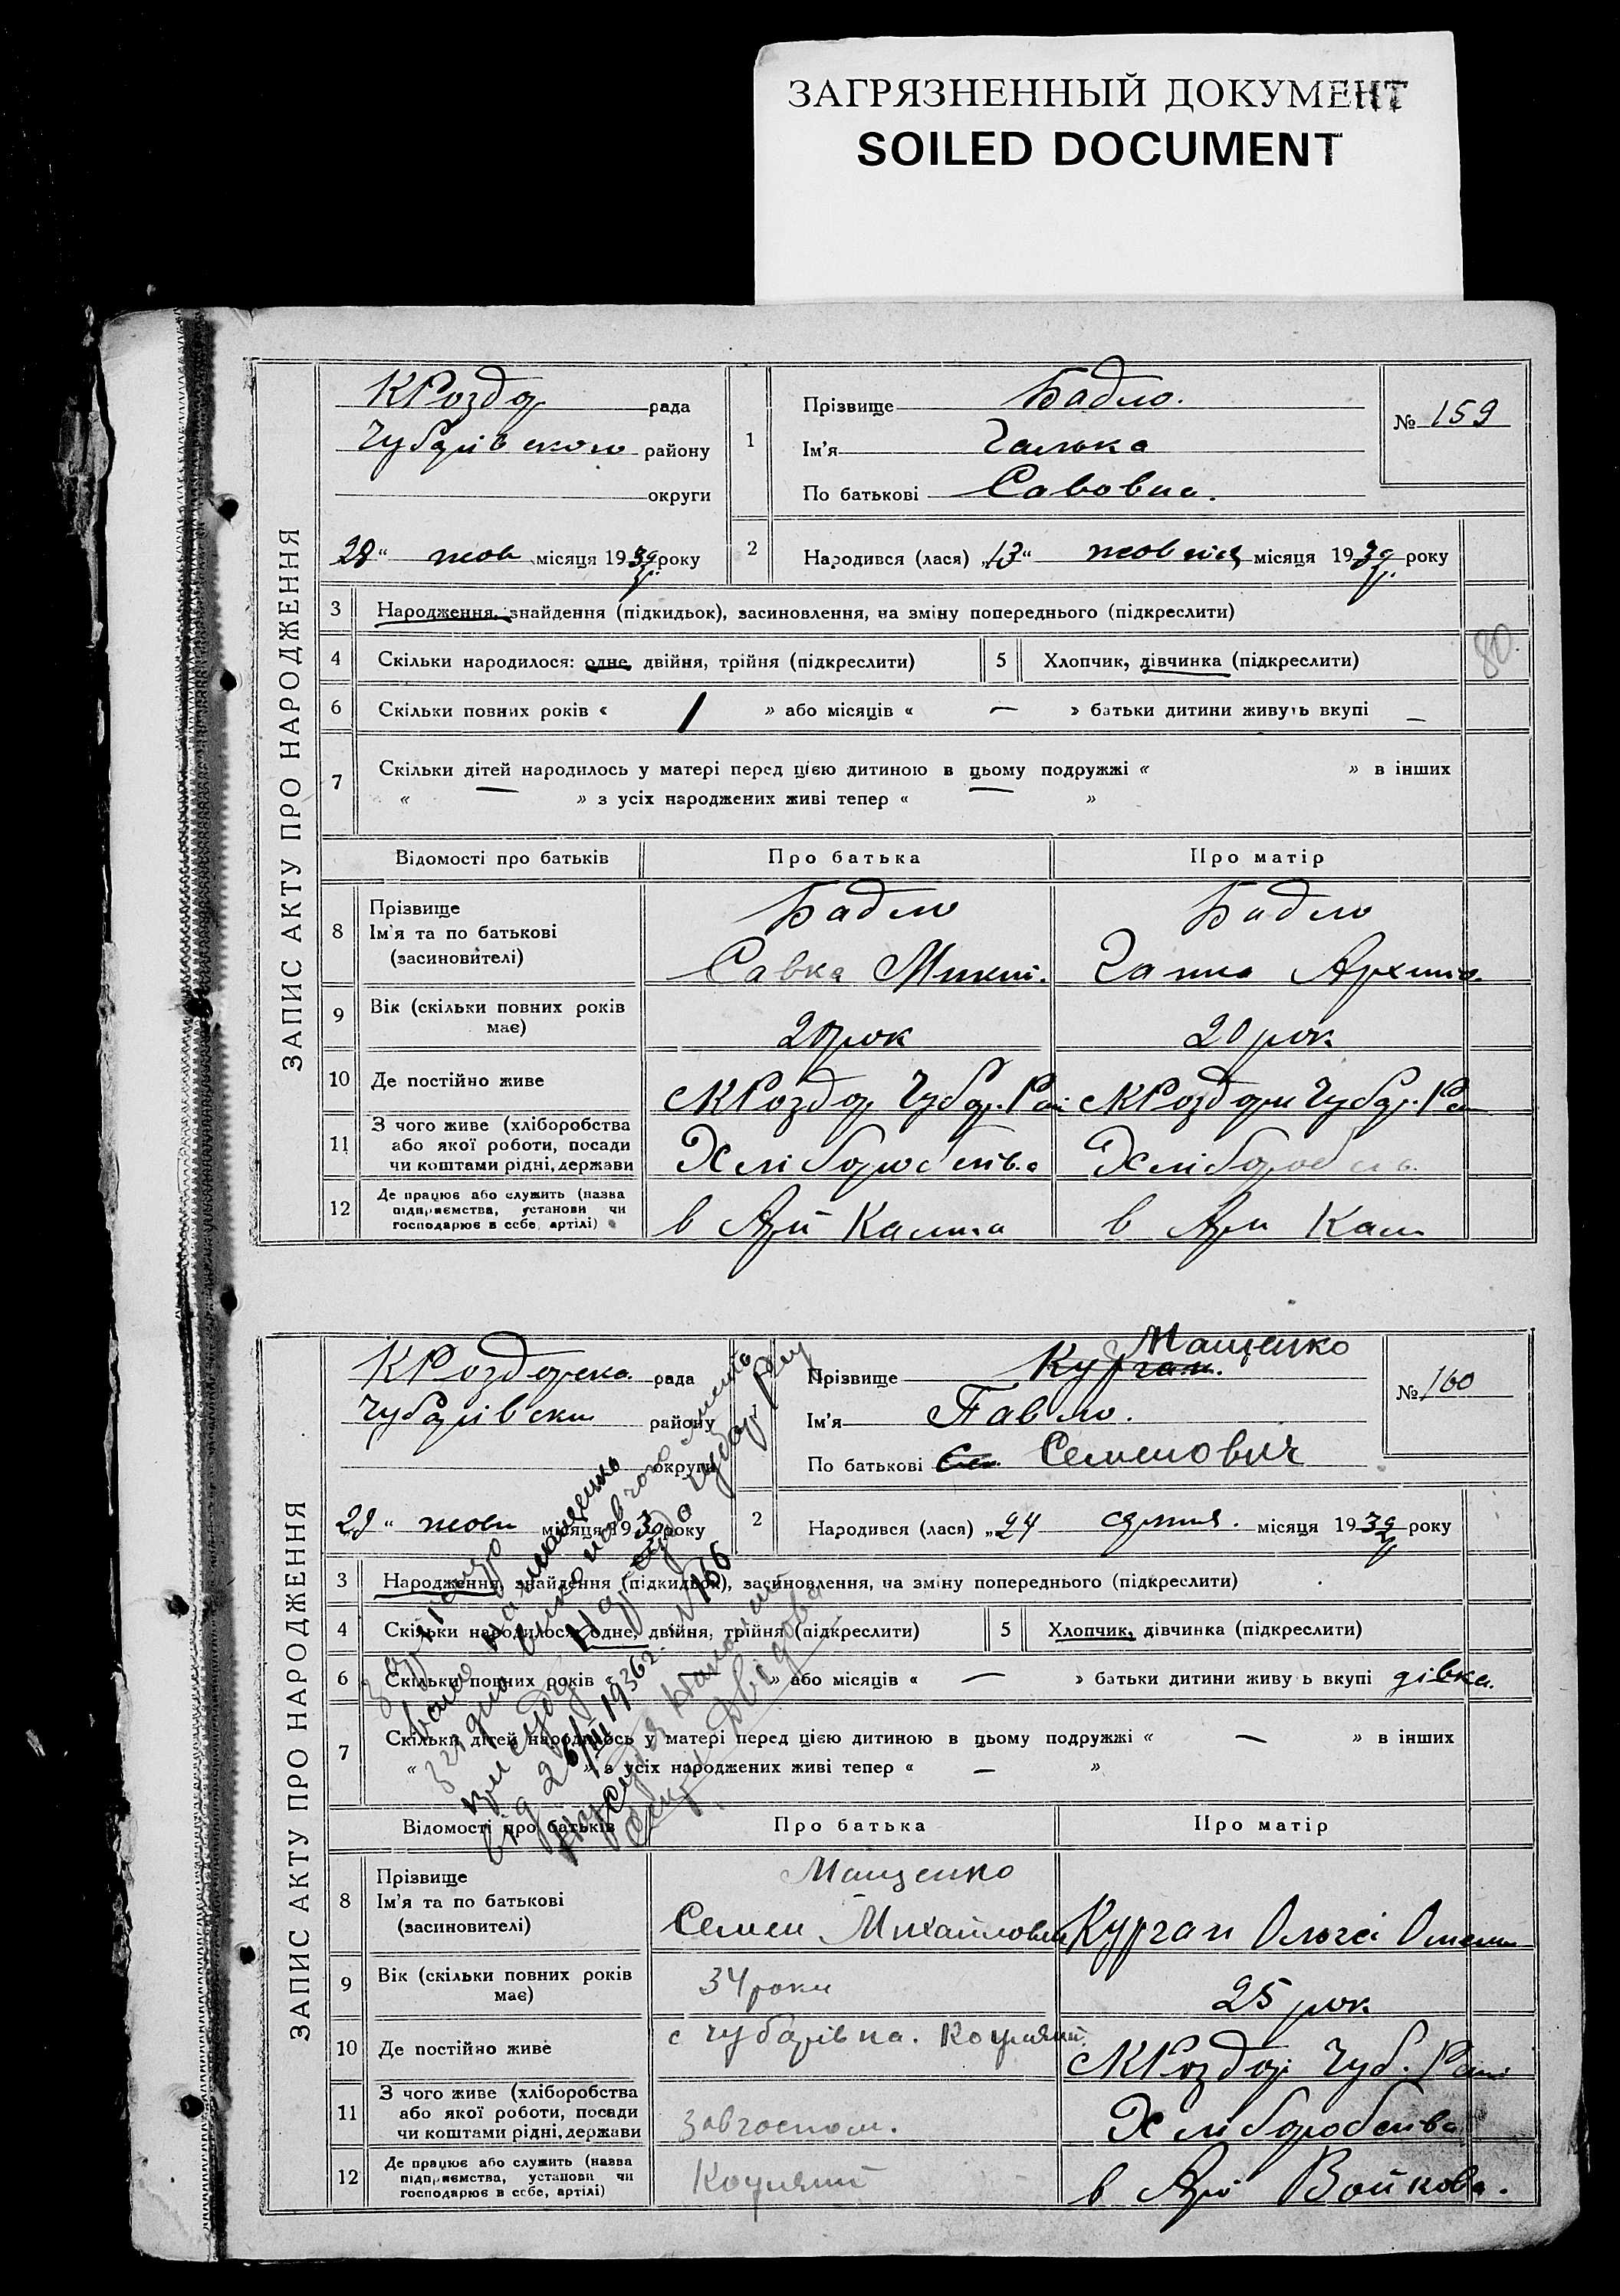 ЗАГРЯЗНЕННЫЙ ДОКУМЕНТ
SOILED DOCUMENT
ЗАПИС АКТУ ПРО НАРОДЖЕННЯ
КРоздор рада
Чубарівського району
округи
28 " жов місяця 19 року
1
Прізвище Бадло.
Ім'я Галька
По батькові Савовна.
№ 159
2
Народився (лася) „13 " жовтня місяця 19 року
3 Народження, знайдення (підкидьок), засиновлення, на зміну попереднього (підкреслити)
4 Скільки народилося: одне, двійня, трійня (підкреслити)
5 Хлопчик, дівчинка (підкреслити)
80.
6 Скільки повних років « 1 » або місяців « — » батьки дитини живуть вкупі —
7 Скільки дітей народилось у матері перед цією дитиною в цьому подружжі « » в інших
« — » з усіх народжених живі тепер « — »
Відомості про батьків Про батька Про матір
8 Прізвище
Ім'я та по батькові
(засиновителі)
Бадло
Савка Микит.
Бадло
Ганна Архипо.
9 Вік (скільки повних років має)
20 рок
20 рок
10 Де постійно живе
с КРоздор Чубар. Рай
с КРоздори Чубар. Ра
11 З чого живе (хліборобства або якої роботи, посади чи коштами рідні, держави
Хліборобства
Хліборобств.
12 Де працює або служить (назва підприємства, установи чи господарює в себе, артілі)
в Арті
в Арт
ЗАПИС АКТУ ПРО НАРОДЖЕННЯ
КРоздорська рада
Чубарівськи району
округи
29 " жовт місяця 19 року
1
Прізвище Курган. Мащенко
Ім'я Павло.
По батькові Семенович
№ 160
2
Народився (лася) „24 серпня. місяця 19 року
3 Народження, знайдення (підкидьок), засиновлення, на зміну попереднього (підкреслити)
4 Скільки народилося: одне, двійня, трійня (підкреслити)
5 Хлопчик, дівчинка (підкреслити)
6 Скільки повних років « » або місяців « — » батьки дитини живуть вкупі дівка.
7 Скільки дітей народилось у матері перед цією дитиною в цьому подружжі « — » в інших
« » з усіх народжених живі тепер « — »
на Мащенко
згідно виконавчого листа
Нарсуду Чубар Рну
від 26/III 1936 г. № 166
Відомості про батьків Про батька Про матір
8 Прізвище
Ім'я та по батькові
(засиновителі)
Мащенко
Семен Михайлович
Курган Ольга Омелян
9 Вік (скільки повних років має)
34 роки
25 рок
10 Де постійно живе
с Чубарівка.
с КРоздор Чуб. Рай
11 З чого живе (хліборобства або якої роботи, посади чи коштами рідні, держави
завгоспом.
Хліборобства
12 Де працює або служить (назва підприємства, установи чи господарює в себе, артілі)
в Арті Войкова.